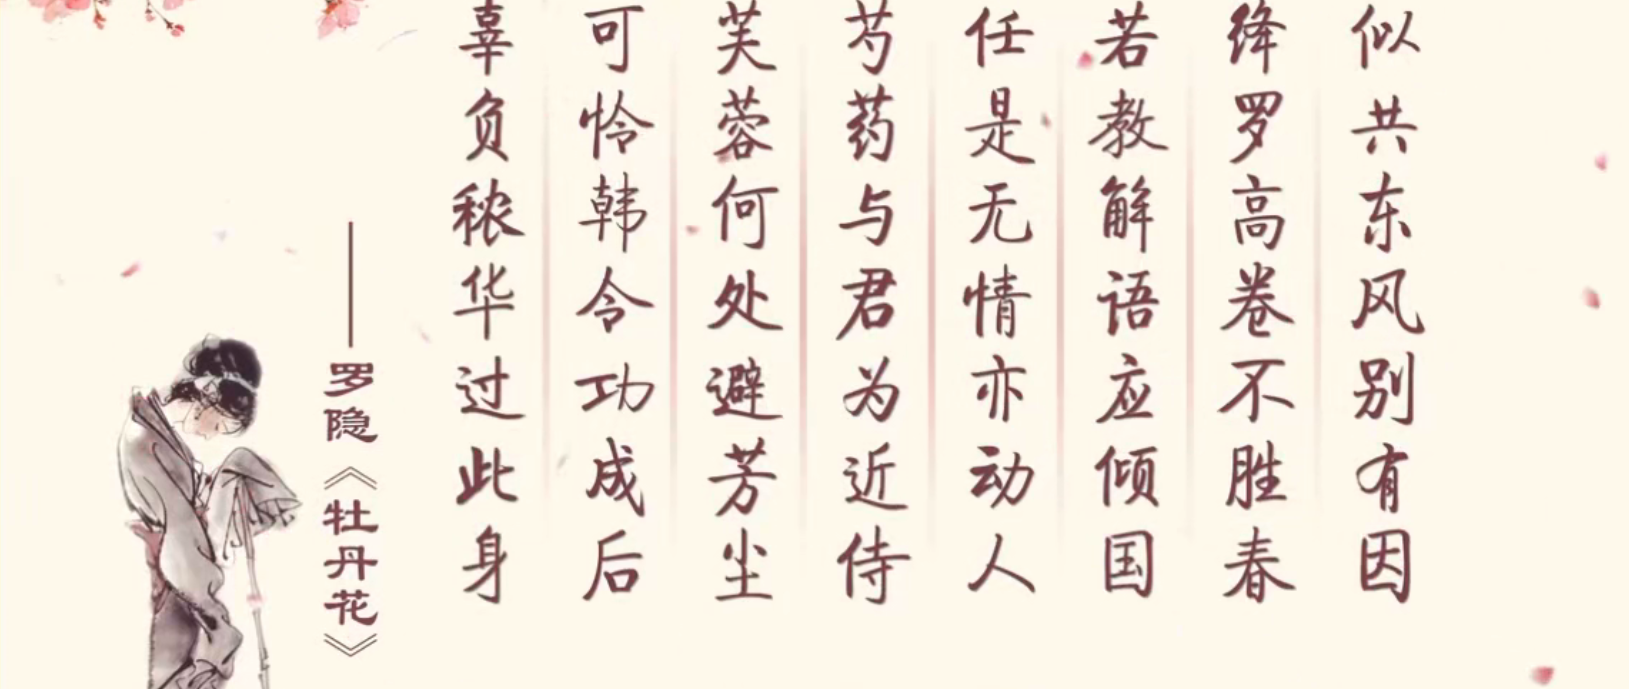 似共东风别有因
绛罗高卷不胜春
若教解语应倾国
任是无情亦动人
芍药与君为近侍
芙蓉何处避芳尘
可怜韩令功成后
辜负秾华过此身
——罗隐《牡丹花》